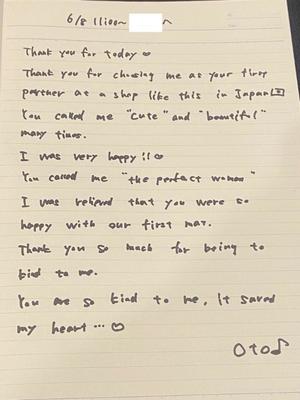 6/8 11:00~
Thank you for today ♡
Thank you for choosing me as your first
partner at a shop like this in Japan🇯🇵
You called me "cute" and "beautiful"
many times.
I was very happy!! ♡
You called me "the perfect woman"
I was relieved that you were so
happy with our first mat.
Thank you so much for being to
kind to me.
You are so kind to me, It saved
my heart... ♡
Oto♪